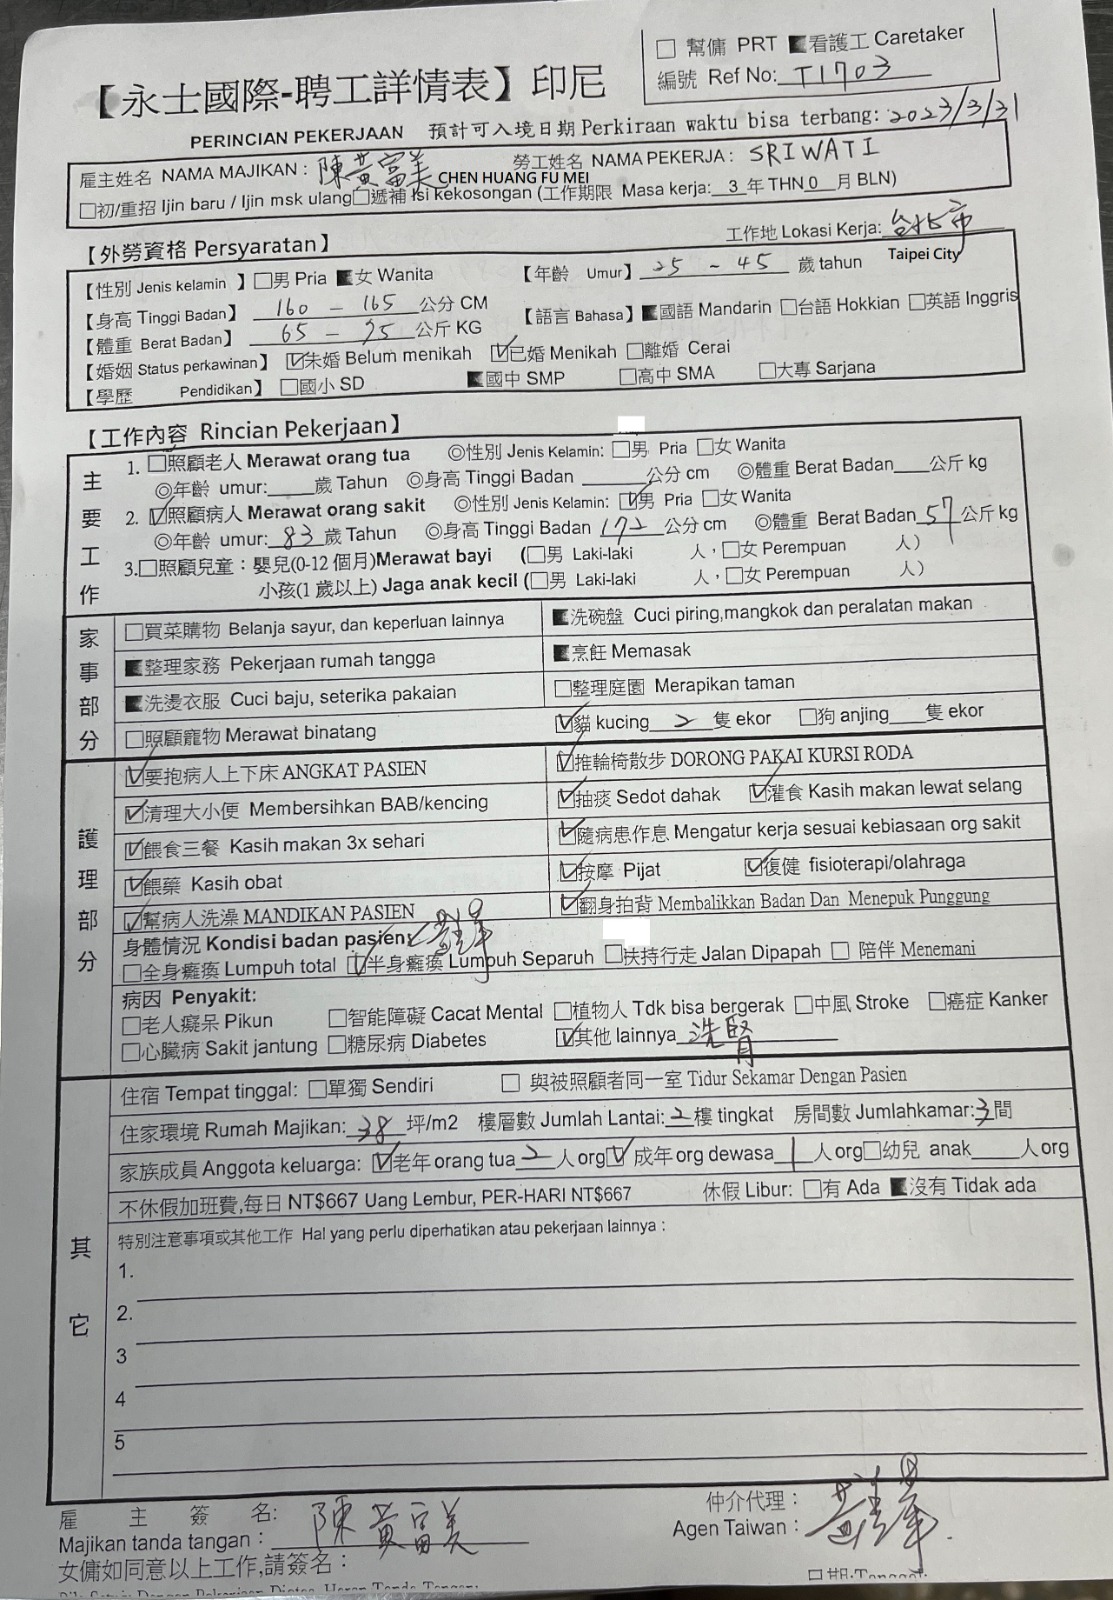 □ 幫傭 PRT ■看護工 Caretaker
編號 Ref No: T1703
【永士國際-聘工詳情表】印尼
PERINCIAN PEKERJAAN 預計可入境日期 Perkiraan waktu bisa terbang: 2023/3/31
雇主姓名 NAMA MAJIKAN : 陳黃富美 CHEN HUANG FU MEI 勞工姓名 NAMA PEKERJA: SRIWATI
□初/重招 Ijin baru / Ijin msk ulang□遞補 Isi kekosongan (工作期限 Masa kerja: 3 年 THN 0 月 BLN)
【外勞資格 Persyaratan】 工作地 Lokasi Kerja: 台北市
Taipei City
【性別 Jenis kelamin 】□男 Pria ■女 Wanita 【年齡 Umur】 25 - 45 歲 tahun
【身高 Tinggi Badan】 160 - 165 公分 CM 【語言 Bahasa】■國語 Mandarin □台語 Hokkian □英語 Inggris
【體重 Berat Badan】 65 - 75 公斤 KG
【婚姻 Status perkawinan】 ☑未婚 Belum menikah ☑已婚 Menikah □離婚 Cerai
【學歷 Pendidikan】 □國小 SD ■國中 SMP □高中 SMA □大專 Sarjana
【工作內容 Rincian Pekerjaan】
主要工作
1. □照顧老人 Merawat orang tua ◎性別 Jenis Kelamin: □男 Pria □女 Wanita
◎年齡 umur:____歲 Tahun ◎身高 Tinggi Badan ______公分 cm ◎體重 Berat Badan___公斤 kg
2. ☑照顧病人 Merawat orang sakit ◎性別 Jenis Kelamin: ☑男 Pria □女 Wanita
◎年齡 umur: 83 歲 Tahun ◎身高 Tinggi Badan 172 公分 cm ◎體重 Berat Badan 57 公斤 kg
3.□照顧兒童：嬰兒(0-12 個月)Merawat bayi (□男 Laki-laki 人，□女 Perempuan 人）
小孩(1 歲以上) Jaga anak kecil (□男 Laki-laki 人，□女 Perempuan 人）
家事部分
□買菜購物 Belanja sayur, dan keperluan lainnya ■洗碗盤 Cuci piring,mangkok dan peralatan makan
■整理家務 Pekerjaan rumah tangga ■烹飪 Memasak
■洗燙衣服 Cuci baju, seterika pakaian □整理庭園 Merapikan taman
□照顧寵物 Merawat binatang ☑貓 kucing 2 隻 ekor □狗 anjing___隻 ekor
護理部分
☑要抱病人上下床 ANGKAT PASIEN ☑推輪椅散步 DORONG PAKAI KURSI RODA
☑清理大小便 Membersihkan BAB/kencing ☑抽痰 Sedot dahak ☑灌食 Kasih makan lewat selang
☑餵食三餐 Kasih makan 3x sehari ☑隨病患作息 Mengatur kerja sesuai kebiasaan org sakit
☑餵藥 Kasih obat ☑按摩 Pijat ☑復健 fisioterapi/olahraga
☑幫病人洗澡 MANDIKAN PASIEN ☑翻身拍背 Membalikkan Badan Dan Menepuk Punggung
身體情況 Kondisi badan pasien:
□全身癱瘓 Lumpuh total ☑半身癱瘓 Lumpuh Separuh □扶持行走 Jalan Dipapah □ 陪伴 Menemani
病因 Penyakit:
□老人癡呆 Pikun □智能障礙 Cacat Mental □植物人 Tdk bisa bergerak □中風 Stroke □癌症 Kanker
□心臟病 Sakit jantung □糖尿病 Diabetes ☑其他 lainnya 洗腎
其它
住宿 Tempat tinggal: □單獨 Sendiri □ 與被照顧者同一室 Tidur Sekamar Dengan Pasien
住家環境 Rumah Majikan: 38 坪/m2 樓層數 Jumlah Lantai: 2 樓 tingkat 房間數 Jumlahkamar: 3 間
家族成員 Anggota keluarga: ☑老年 orang tua 2 人 org ☑ 成年 org dewasa 1 人 org□幼兒 anak____人 org
不休假加班費,每日 NT$667 Uang Lembur, PER-HARI NT$667 休假 Libur: □有 Ada ■沒有 Tidak ada
特別注意事項或其他工作 Hal yang perlu diperhatikan atau pekerjaan lainnya :
1.
2.
3
4
5
雇主簽名: 陳黃富美 仲介代理：
Majikan tanda tangan : Agen Taiwan :
女傭如同意以上工作,請簽名：